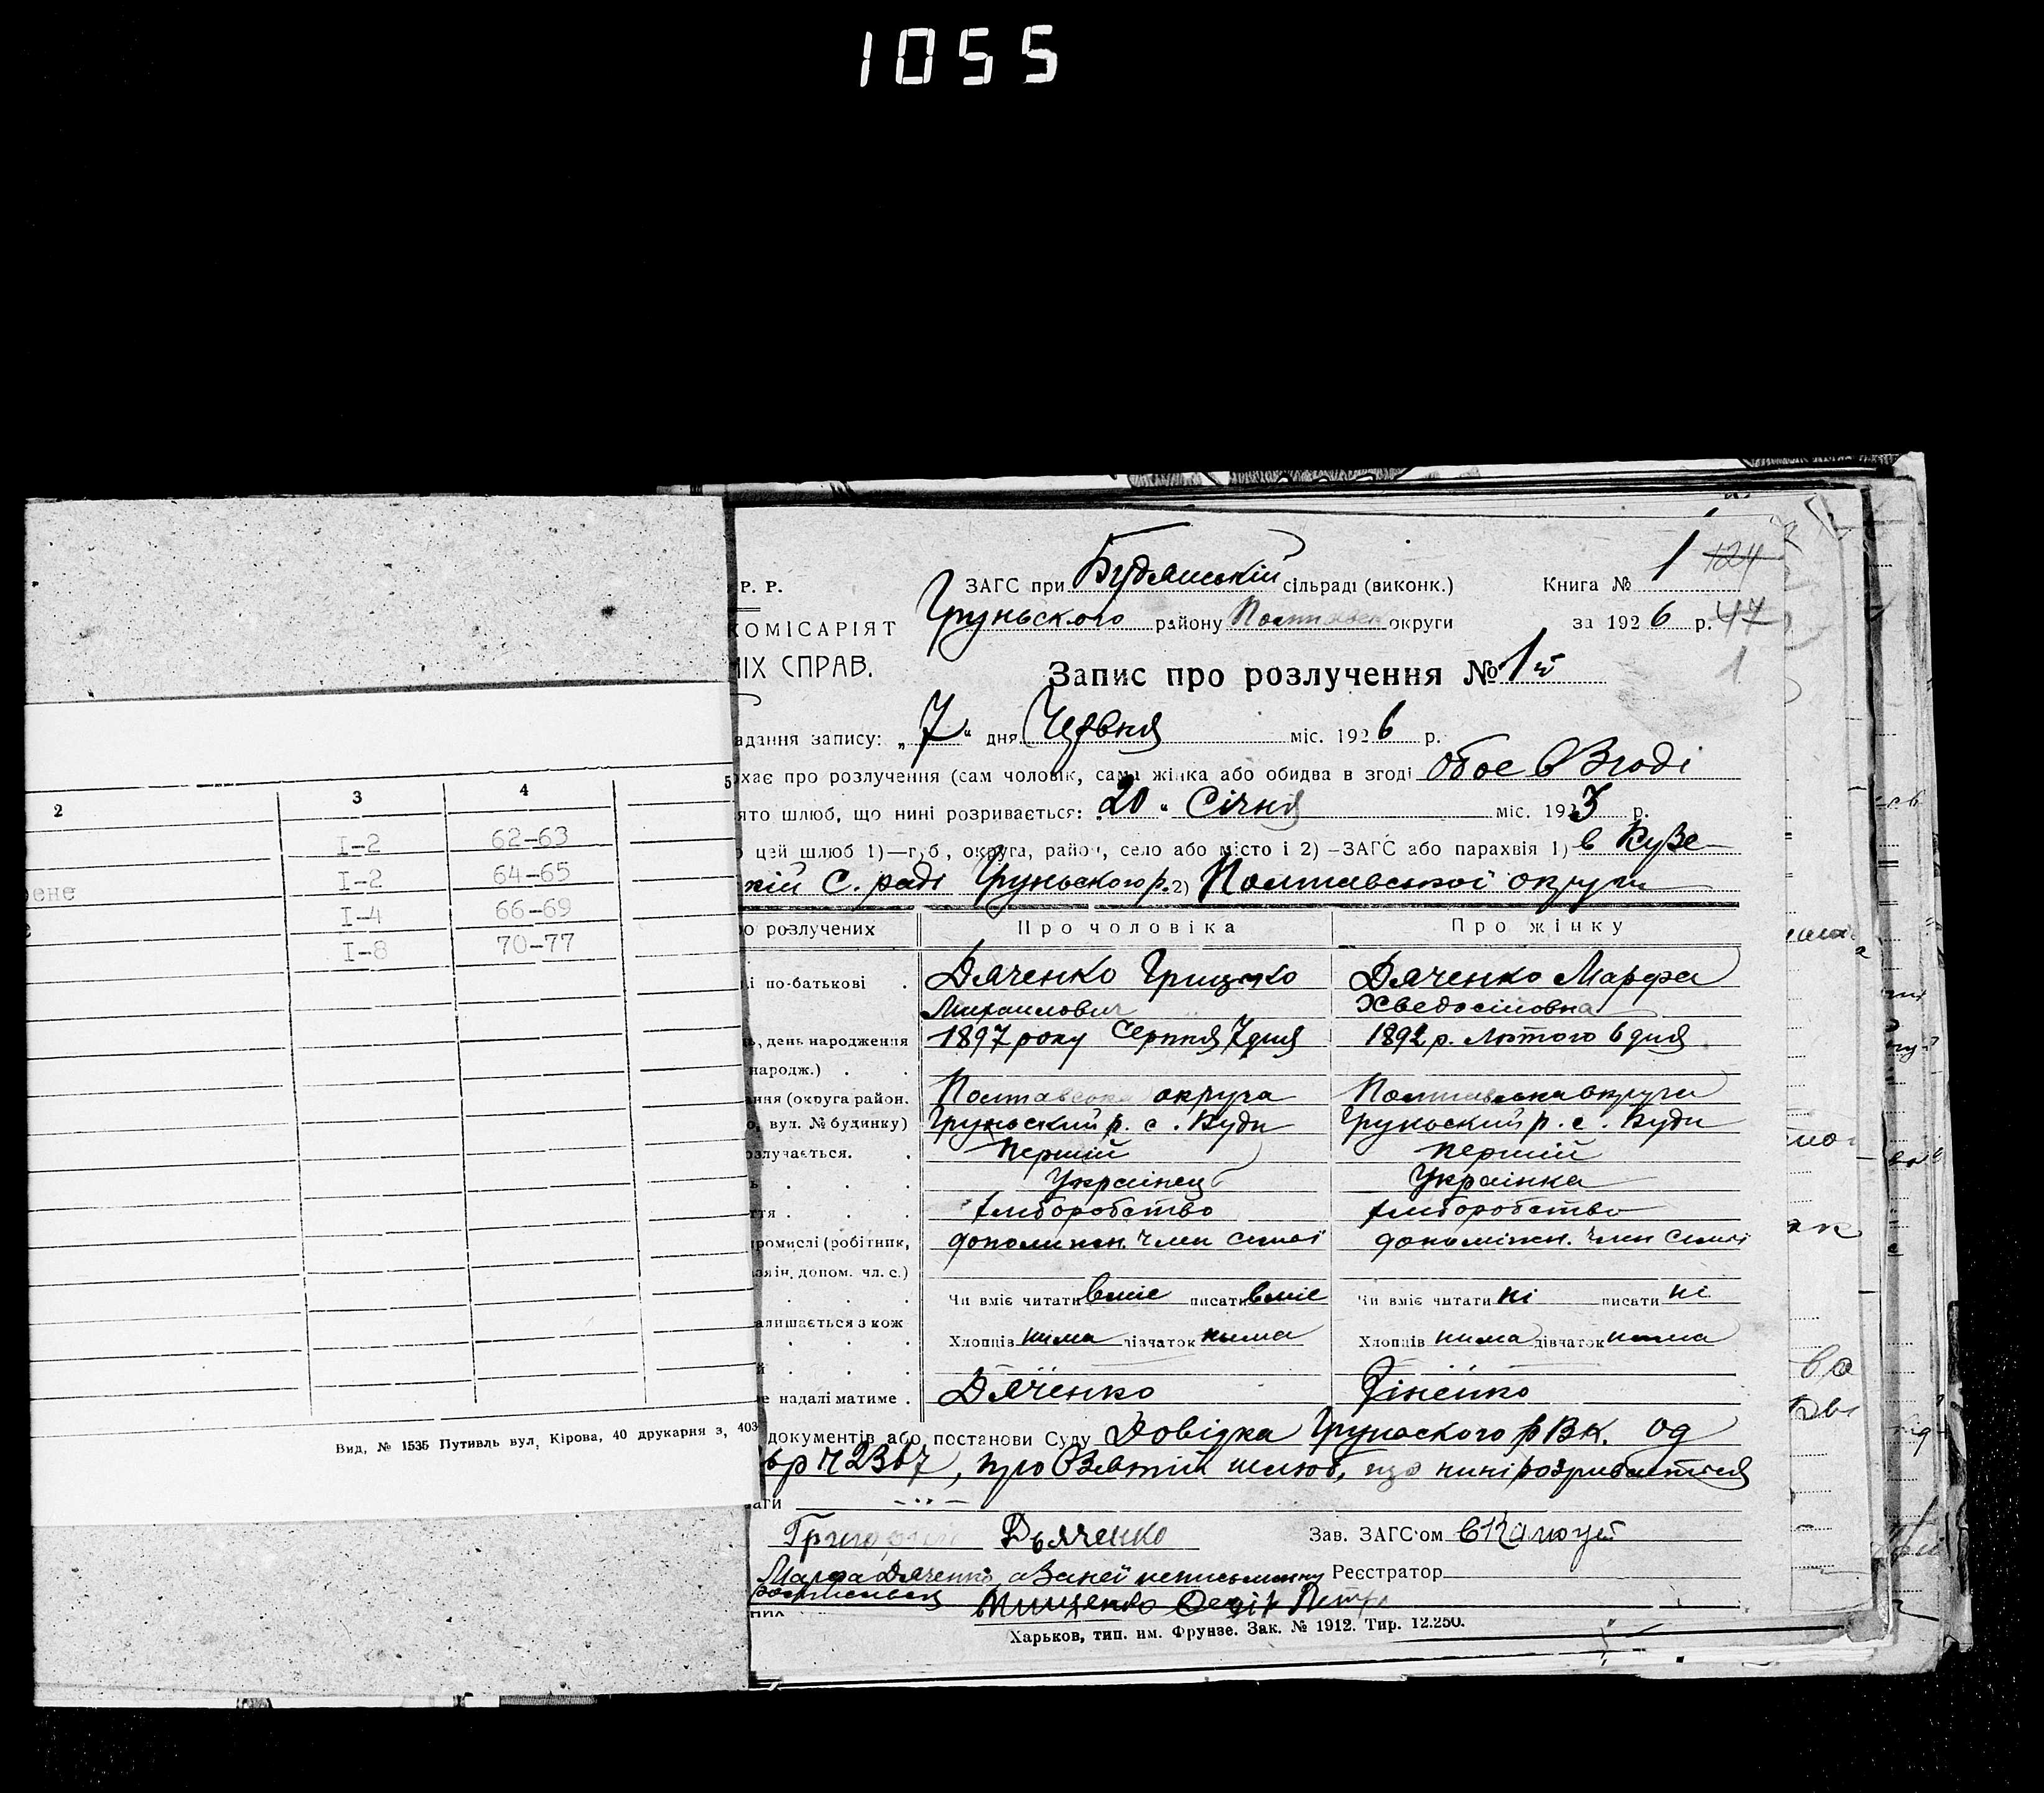 1055
2 3 4 5
I-2 62-63
ене I-2 64-65
I-4 66-69
I-8 70-77
Вид, № 1535 Путивль вул, Кірова, 40 друкарня з, 403
Р. Р. ЗАГС при Будянській сільраді (виконк.) Книга № 1 124
Груньського району Полтавськ округи за 1926 р. 47
КОМІСАРІЯТ
ІХ СПРАВ. Запис про розлучення № 1й 1
адання запису: „7“ дня Червня міс. 1926 р.
хає про розлучення (сам чоловік, сама жінка або обидва в згоді обоє в Згоді
ято шлюб, що нині розривається: 20 " Січня міс. 1923 р.
цей шлюб 1)—губ, округа, район, село або місто і 2)—ЗАГС або парахвія 1) в Кузе
кій С. раді Груньського р. 2) Полтавської округи
о розлучених Про чоловіка Про жінку
і по-батькові . Дяченко Грицько Дяченко Марфа
Михаилович Хведосіовна
, день народження 1897 року Серпня 7 дня 1892 р. Лютого 6 дня
народж.) . .
ння (округа район. Полтавська округа Полтавська округа
о, вул. № будинку) Груньский р. с. Буди Груньский р. с. Буди
озлучається. . Першій Першій
ь . . . Українець Українка
ття . . . хліборобство хліборобство
ромислі (робітник, допоміжн. член симьї допоміжн. член симьї
зяін, допом. чл. с.)
. . . Чи вміє читати вміє писати вміє Чи вміє читати ні писати ні
алишається з кож
. . . Хлопців нима дівчаток ныма Хлопців нима дівчаток нима
й . . .
е надалі матиме . Дяченко Фіненко
документів або постанови Суду Довідка Груньского рВК. од
про Взятий шлюб, що нині розривається
ати
Григорій Дьяченко Зав. ЗАГС'ом
Марфа Дяченко, а За неї неписьменну Реєстратор
росписався Мищенко Петр
пил
Харьков, тип. им. Фрунзе. Зак. № 1912. Тир. 12.250.